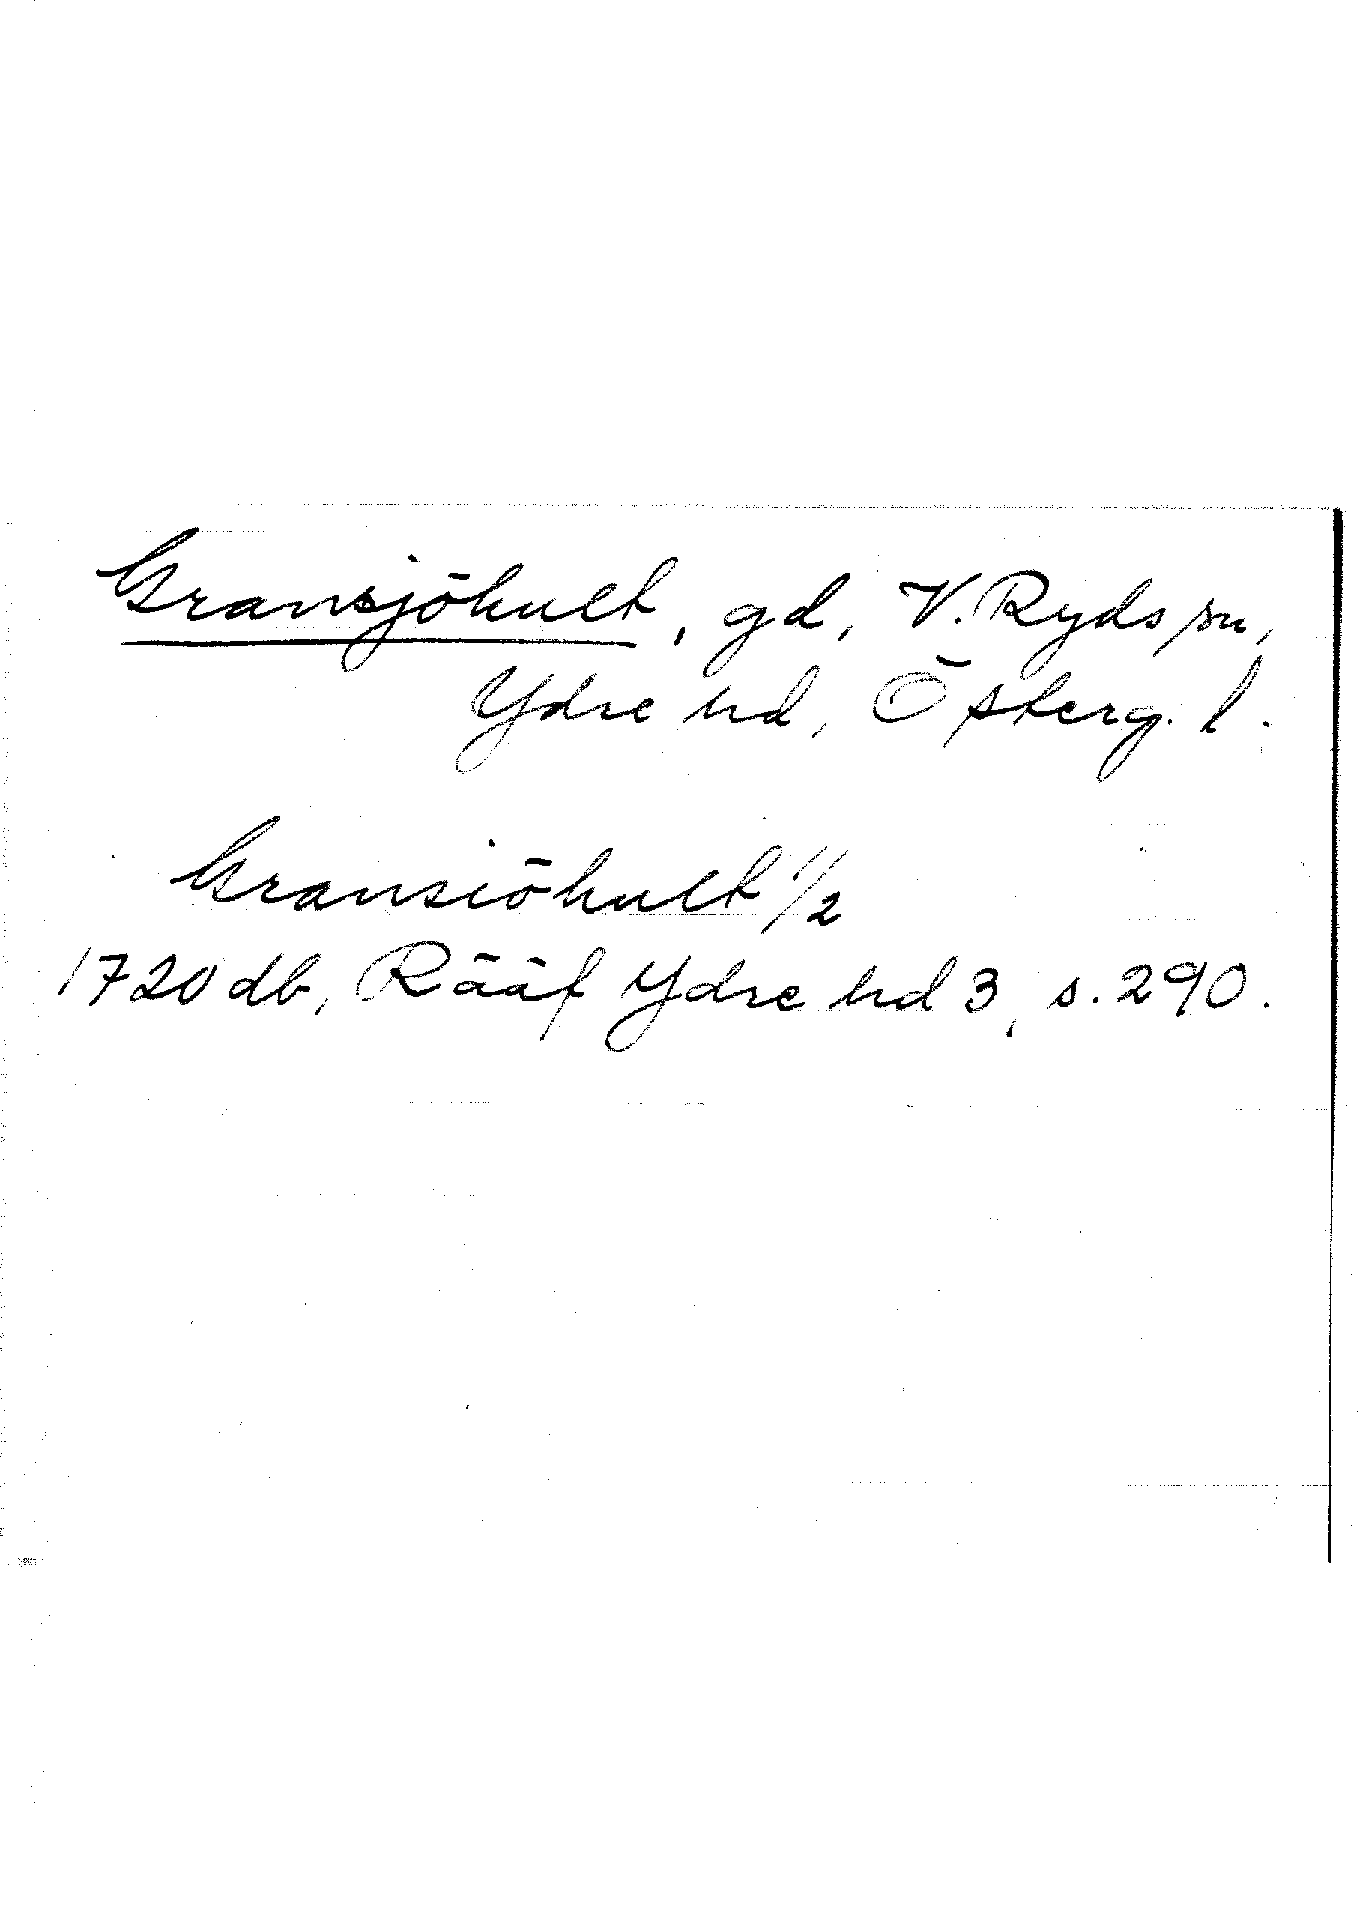 Gransjöhult, gd, V. Ryds sn,
Ydre hd, Österg. l.
Gransiöhult 1/2
1720 db, Rääf Ydre hd 3, s. 290.